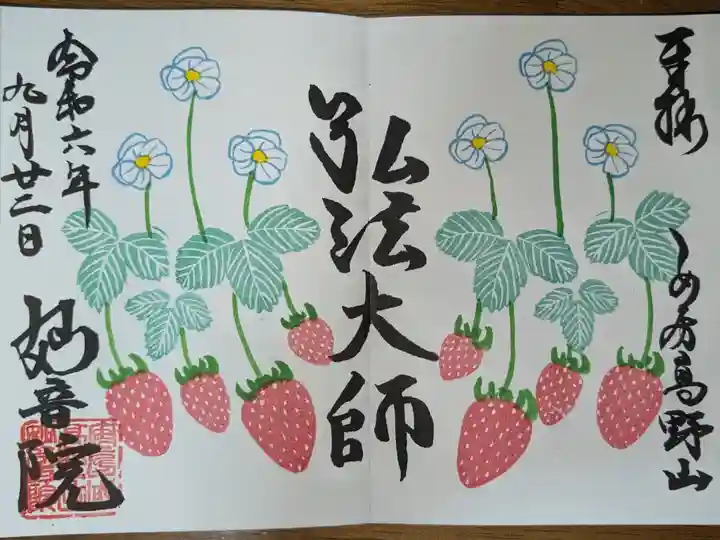 奉拝
うめ房高野山
弘法大師
令和六年
九月廿二日
妙音院